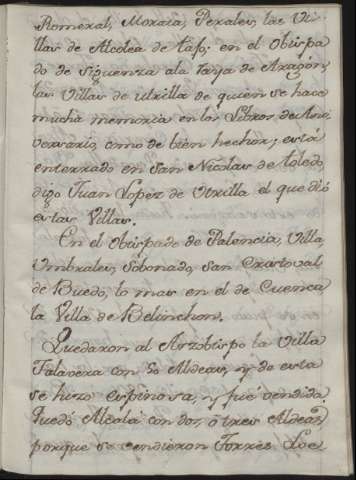 Romeral, Moraia, Perales, las Vi-
llas de Alcolea de tafo; en el Obispa
do de Siguenza ala raya de Aragón,
las Villas de utrilla de quien se hace
mucha memoria en los Libros de Ani
versario como de bien hechor; está
enterrado en San Nicolas de toledo
digo Juan Lopez de Utrilla el que dió
estas Villas.
En el Obispado de Palencia, Villa
Umbrales, sobonado, san Cristoval
de Buedo, lo mas en el de Cuenca
la Villa de Belinchon.
Quedaron al Arzobispo la Villa
Talavera con 50 Aldeas, y de esta
se hizo espinosa, y fué vendida
quedó Alcalá con dos, ó tres Aldeas,
porque se vendieron Torres Loe